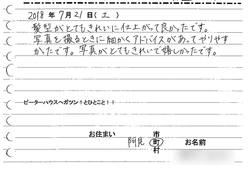 2018年 7月21日(土)
髪型がとてもきれいに仕上がって良かったです。
写真を撮るときに細かくアドバイスがあってやりやす
かったです。写真がとてもきれいで嬉しかったです。
ピーターハウスへガツン!とひとこと!!
お住まい 阿見 市 町 村 お名前